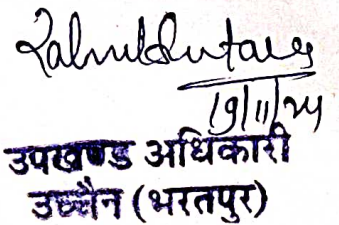 19/11/24
उपखण्ड अधिकारी
उच्चैन (भरतपुर)